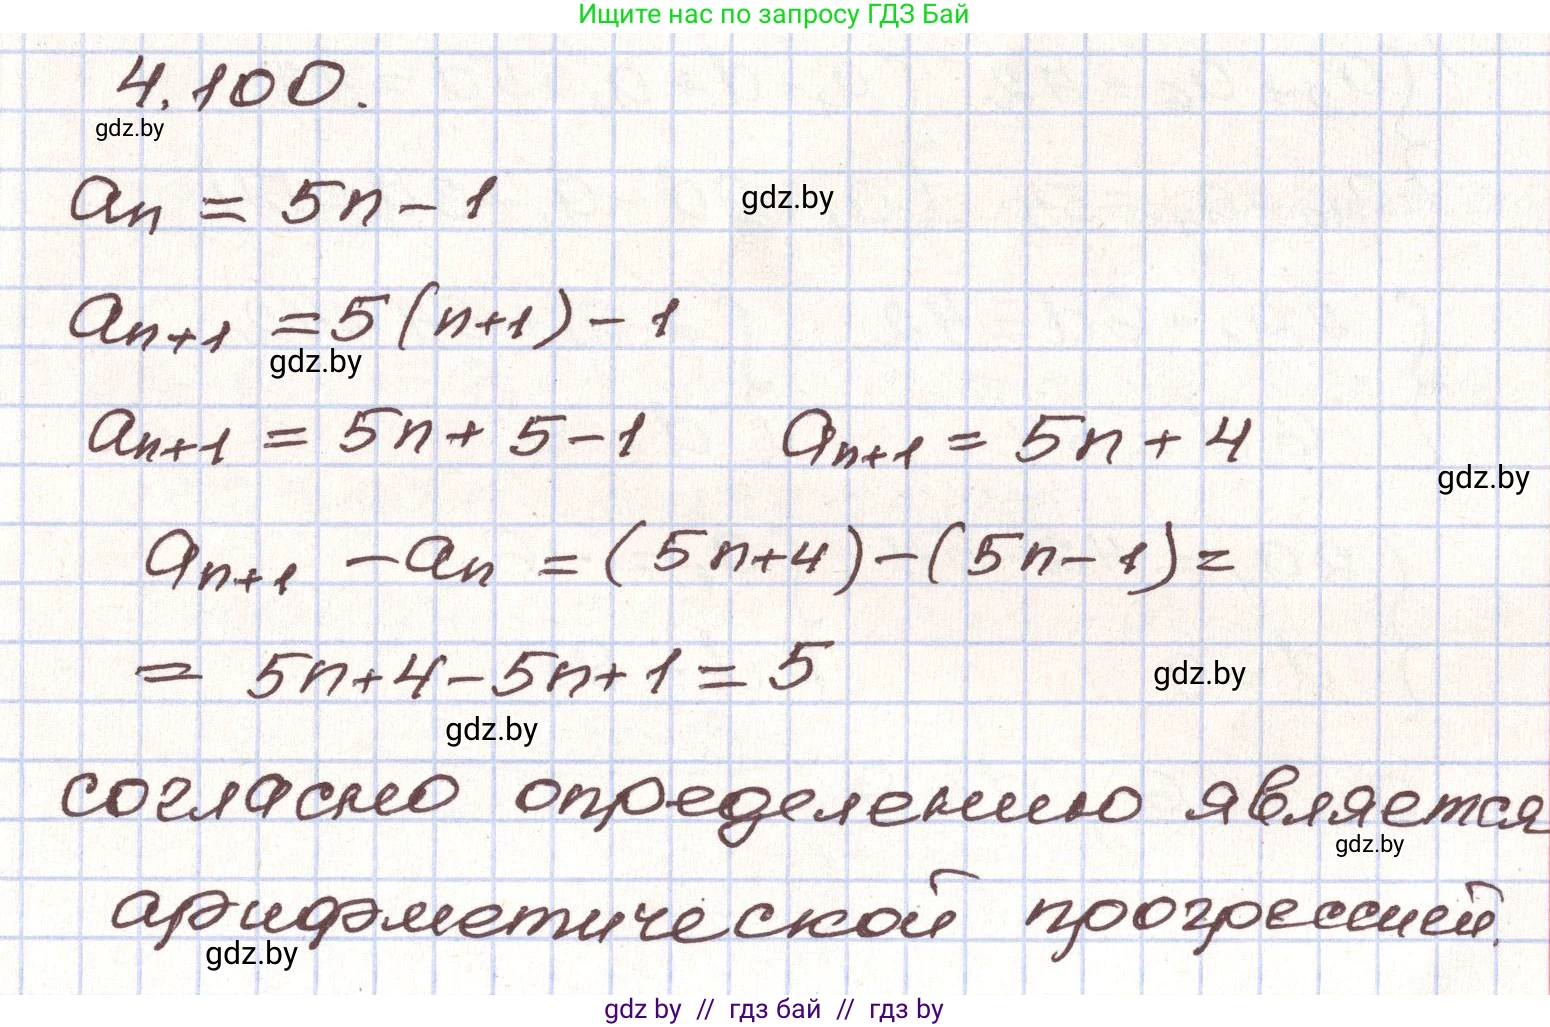 Ищите нас по запросу ГДЗ Бай
4.100.
gdz.by
aₙ = 5n - 1
gdz.by
aₙ₊₁ = 5(n+1) - 1
gdz.by
aₙ₊₁ = 5n + 5 - 1   aₙ₊₁ = 5n + 4
gdz.by
aₙ₊₁ - aₙ = (5n+4) - (5n - 1) =
= 5n + 4 - 5n + 1 = 5
gdz.by
gdz.by
согласно определению является
gdz.by
арифметической прогрессией.
gdz.by
gdz by // гдз бай // гдз by